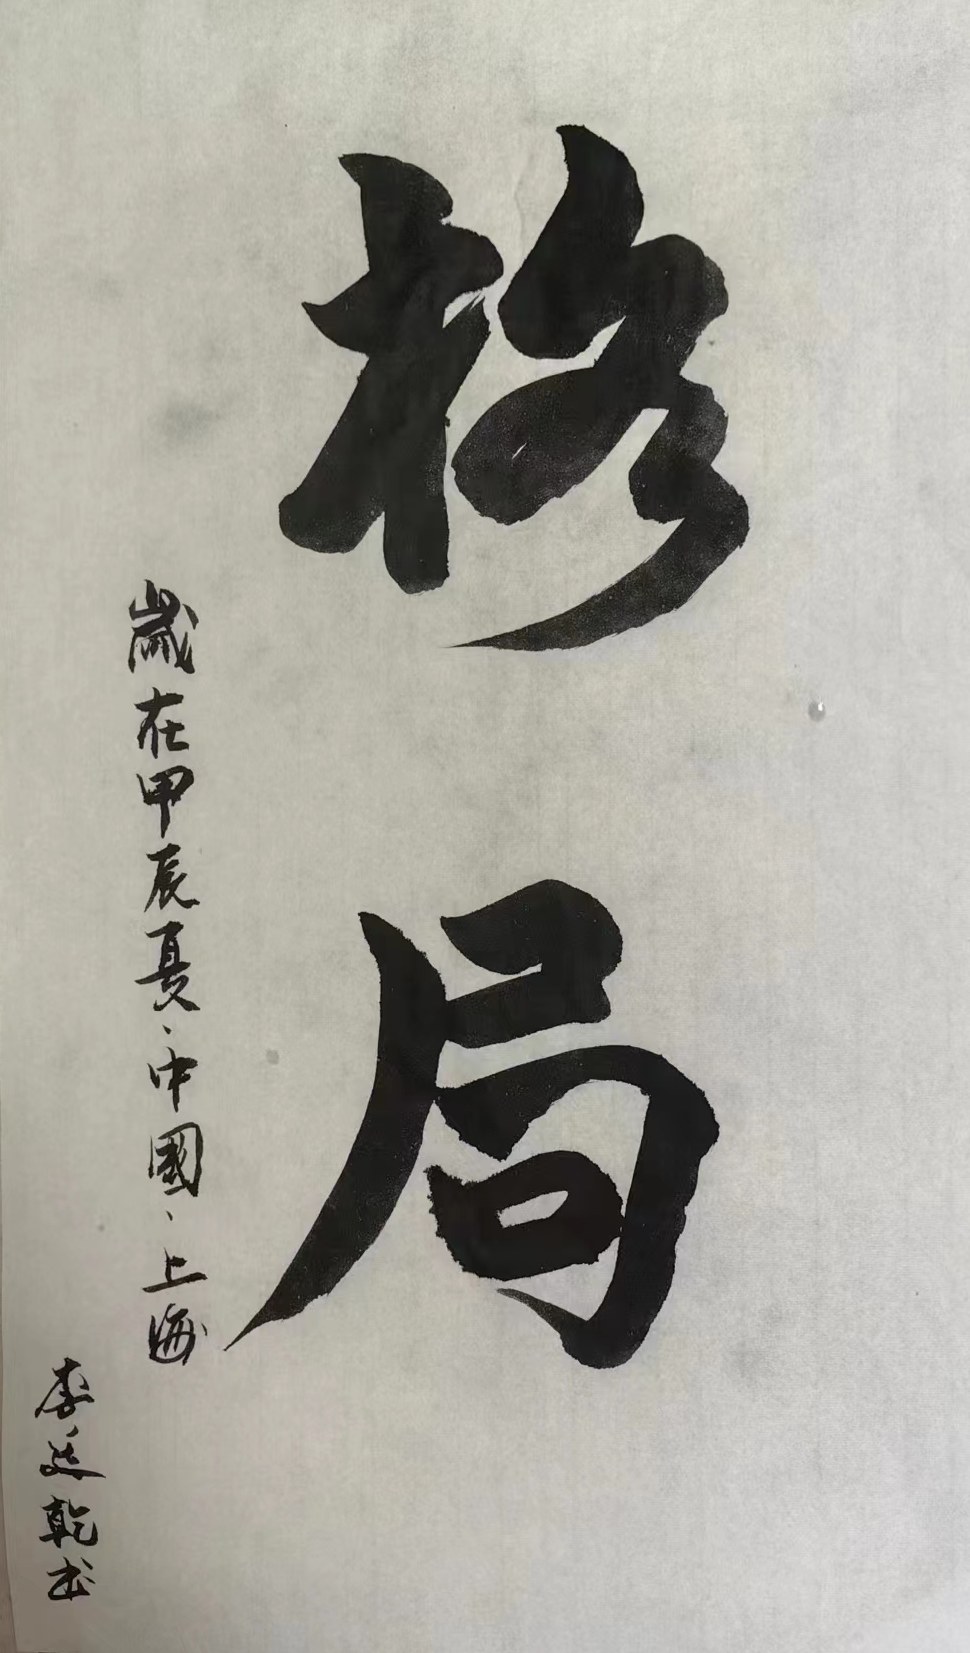 格局
歲在甲辰夏、中國、上海
李廷乾书